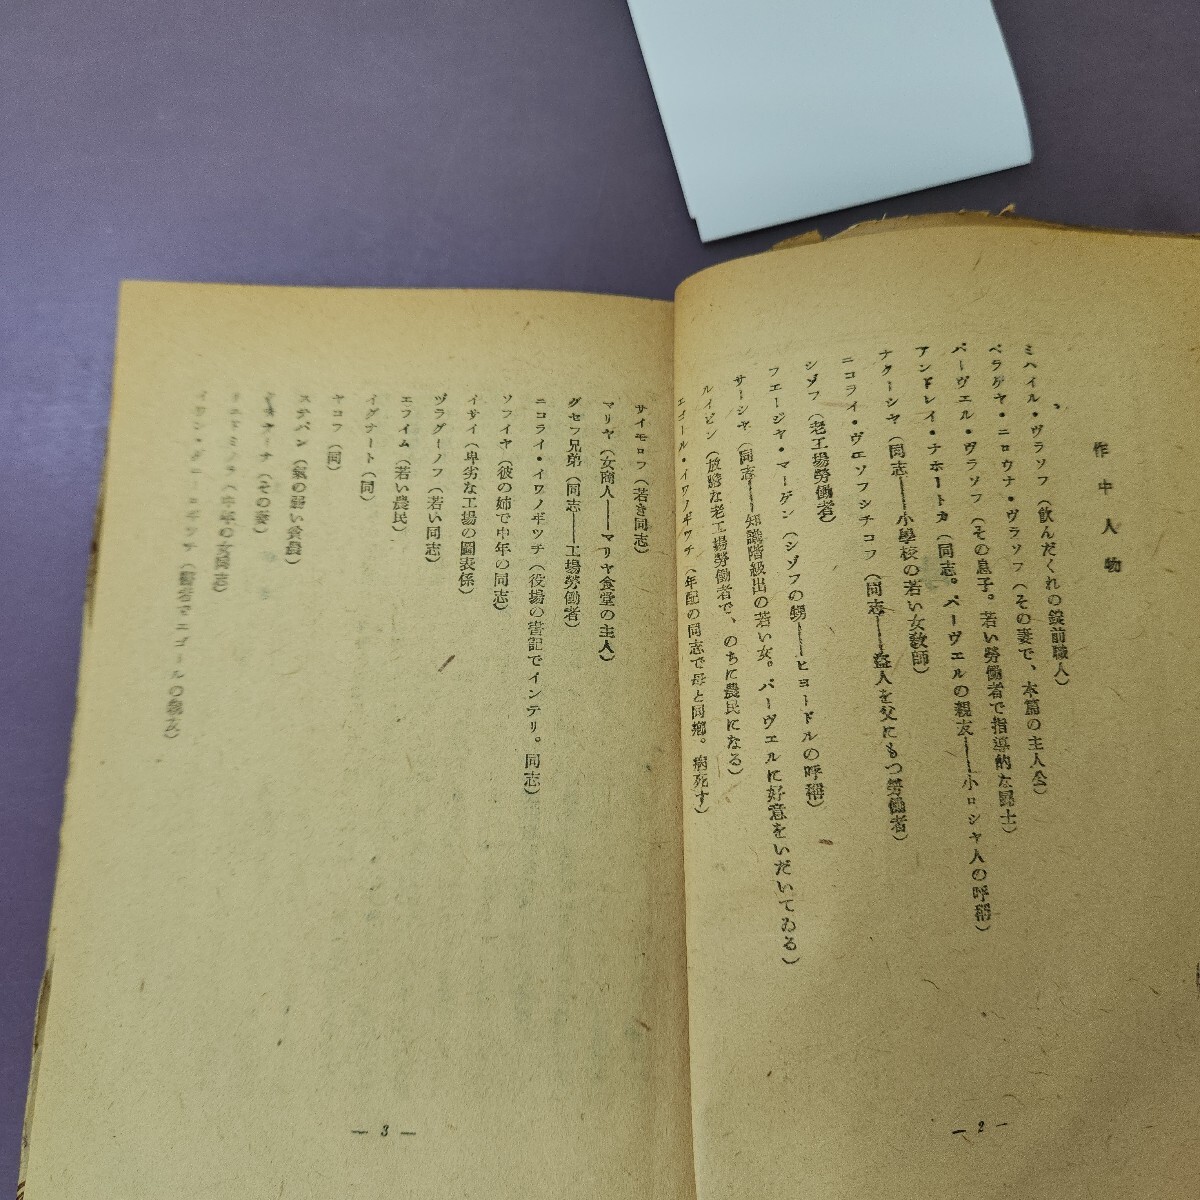 作中人物
ミハイル・ヴラソフ（飲んだくれの錠前職人）
ペラゲヤ・ニロウナ・ヴラソフ（その妻で、本篇の主人公）
パーヴェル・ヴラソフ（その息子。若い勞働者で指導的な鬪士）
アンドレイ・ナホートカ（同志。パーヴエルの親友――小ロシヤ人の呼稱）
ナターシヤ（同志――小學校の若い女敎師）
ニコライ・ヴエソフシチコフ（同志――盗人を父にもつ勞働者）
シゾフ（老工場勞働者）
フエージヤ・マーゲン（シゾフの甥――ヒヨードルの呼稱）
サーシヤ（同志――知識階級出の若い女。パーヴエルに好意をいだいてゐる）
ルイビン（放膽な老工場勞働者で、のちに農民になる）
エゴール・イワノギツチ（年配の同志で母と同鄕。病死す）
— 2 —
サイモロフ（若き同志）
マリヤ（女商人――マリヤ食堂の主人）
グセフ兄弟（同志――工場勞働者）
ニコライ・イワノギツチ（役場の書記でインテリ。同志）
ソフイヤ（彼の姉で中年の同志）
イサイ（卑劣な工場の圖表係）
ヅラグーノフ（若い同志）
エフイム（若い農民）
イグナート（同）
ヤコフ（同）
ステパン（氣の弱い貧農）
（その妻）
リユドミラ（中年の女同志）
イワン・ダニ ロギツチ（醫者でエゴールの親友）
— 3 —